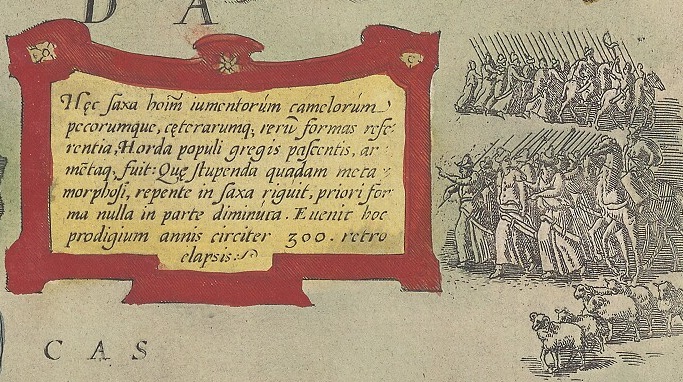 D A
Hęc saxa hoim̄ iumentorúm camelorúm
pecorumque, cęterarumq, rerū formas refe-
rentia, Horda populi gregis pascentis, ar
mētaq, fuit: Quę stupenda quadam meta
morphosi, repente in saxa riguit, priori for
ma nulla in parte diminúta. Euenit hoc
prodigium annis circiter 300. retro
elapsis.
C A S